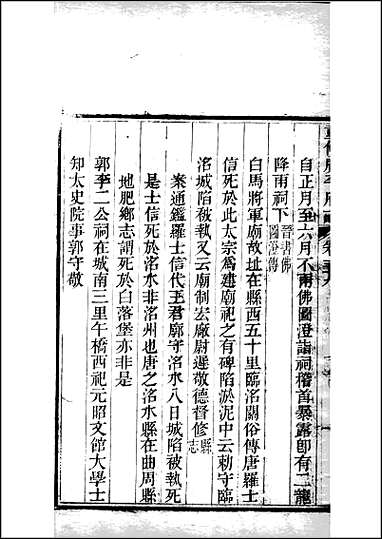 自正月至六月不雨佛圖澄詣祠稽首暴露卽有二龍
降雨祠下晉書佛圖澄傳
白馬將軍廟故址在縣西五十里臨洺關俗傳唐羅士
信死於此太宗爲建廟祀之有碑陷淤泥中云勅守臨
洺城陷被執又云廟制宏廠尉遲敬德督修縣志
案通鑑羅士信代王君廓守洺水八日城陷被執死
是士信死於洺水非洺州也唐之洺水縣在曲周縣
地肥鄉志謂死於白落堡亦非是
郭李二公祠在城南三里午橋西祀元昭文館大學士
知太史院事郭守敬